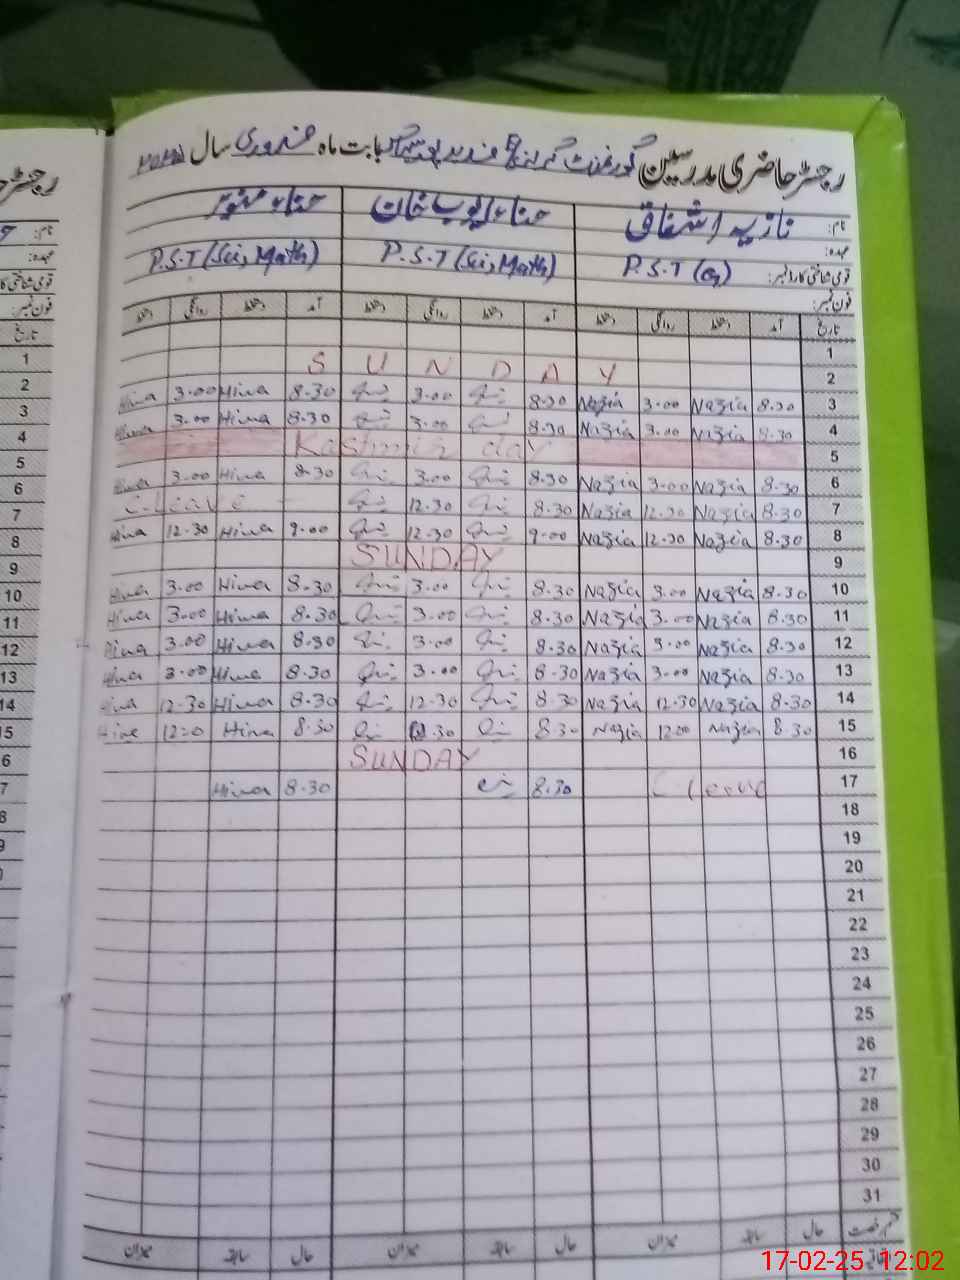 رجسٹر حاضری مدرسین گورنمنٹ گرلز بابت ماہ فروری سال
نام: نازیہ اشفاق حناء ایوب خان حناء منور
عہدہ: P.S.T P.S.T (Sci, Math) P.S.T (Sci, Math)
قومی شناختی کارڈ نمبر:
فون نمبر:
تاریخ آمد دستخط روانگی دستخط آمد دستخط روانگی دستخط آمد دستخط روانگی دستخط
1
SUNDAY 2
Hina 3.00 Hina 8.30 3.00 8.30 Nazia 3.00 Nazia 8.30 3
Hina 3.00 Hina 8.30 3.00 8.30 Nazia 3.00 Nazia 8.30 4
Kashmir day 5
Hina 3.00 Hina 8.30 3.00 8.30 Nazia 3.00 Nazia 8.30 6
C.leave 12.30 8.30 Nazia 12.30 Nazia 8.30 7
Hina 12.30 Hina 9.00 12.30 9.00 Nazia 12.30 Nazia 8.30 8
SUNDAY 9
Hina 3.00 Hina 8.30 3.00 8.30 Nazia 3.00 Nazia 8.30 10
Hina 3.00 Hina 8.30 3.00 8.30 Nazia 3.00 Nazia 8.30 11
Hina 3.00 Hina 8.30 3.00 8.30 Nazia 3.00 Nazia 8.30 12
Hina 3.00 Hina 8.30 3.00 8.30 Nazia 3.00 Nazia 8.30 13
Hina 12.30 Hina 8.30 12.30 8.30 Nazia 12.30 Nazia 8.30 14
Hina Hina 8.30 8.30 Nazia Nazia 8.30 15
SUNDAY 16
Hina 8.30 8.30 C leave 17
18
19
20
21
22
23
24
25
26
27
28
29
30
31
حال سابقہ میزان حال سابقہ میزان حال سابقہ میزان
17-02-25 12:02